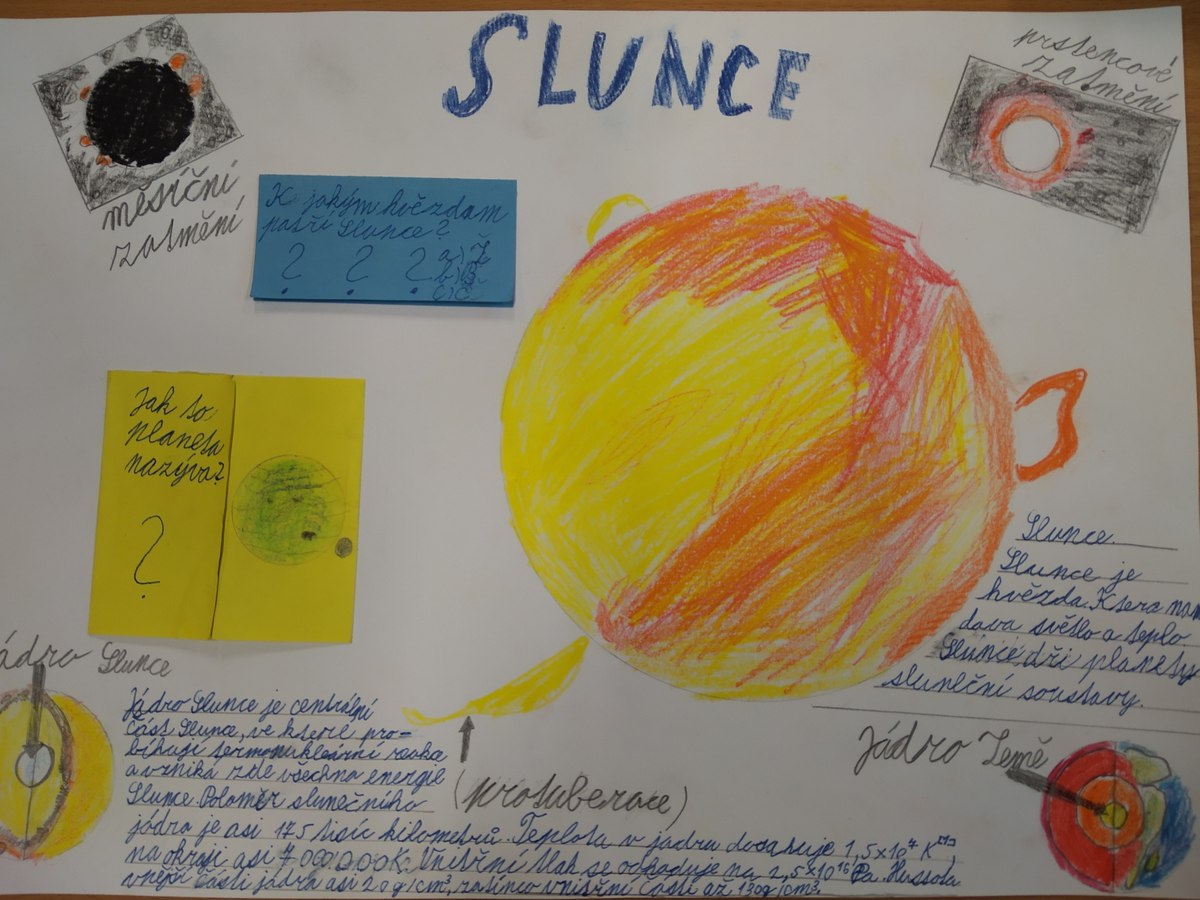 SLUNCE
měsíční
zatmění
prstencové
zatmění
K jakým hvězdam
patří Slunce?
? ? ? a) Ž
b) B
c) Č
Jak se
planeta
nazýva?
?
Slunce
Slunce je
hvězda. Ktera nam
dava světlo a teplo
Slunce, dři planety
sluneční soustavy.
jádro Slunce
Jádro Slunce je centrální
část Slunce, ve které pro-
bíhají termonukleární
a vzniká zde všechna energie
Slunce. Poloměr slunečního
jádra je asi 175 tisíc kilometrů. Teplota v jádru dosahuje 1,5x10⁷ K
na okraji asi 7 000 000 K. Vnitřní tlak se odhaduje na 2,5x10¹⁶ Pa. Hustota
vnější části jádra asi 20g/cm³, zatímco vnitřní části až 130g/cm³.
(protuberace)
Jádro Země